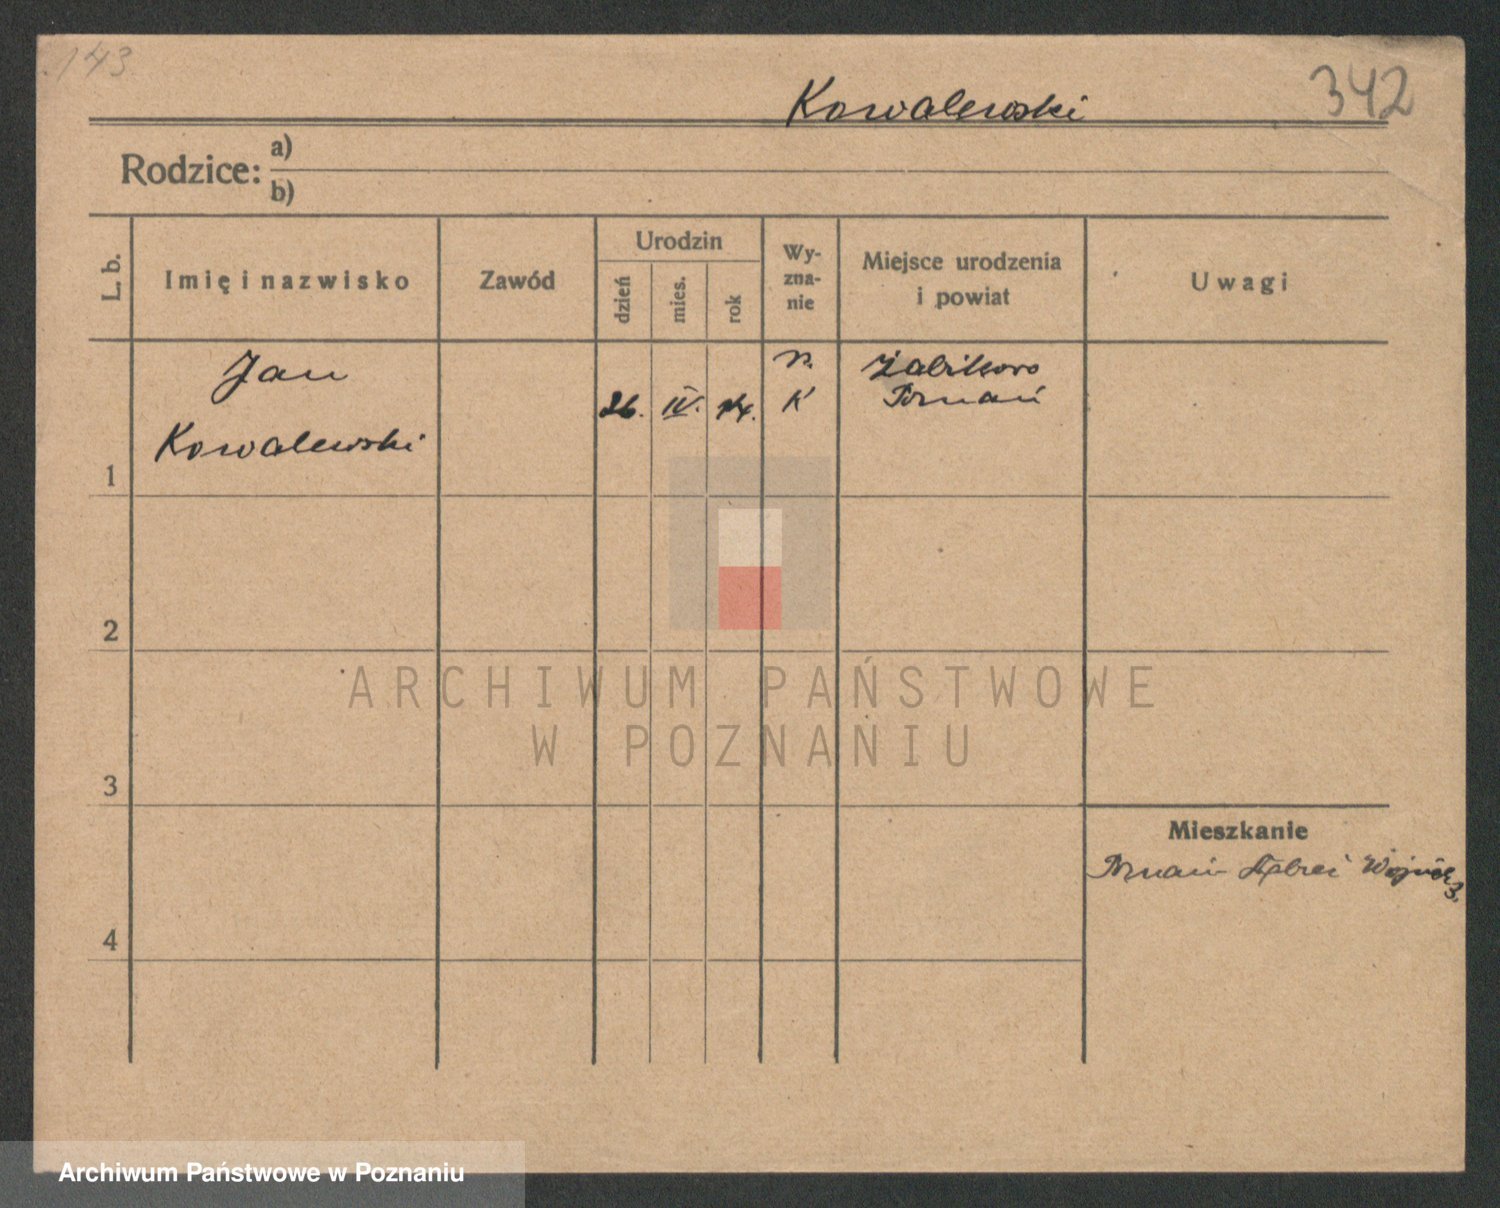 143
342
Kowalewski
Rodzice: a)
b)
L. b.
Imię i nazwisko
Zawód
Urodzin
dzień
mies.
rok
Wy-
zna-
nie
Miejsce urodzenia
i powiat
Uwagi
Jan
Kowalewski
26. IV. 14.
r.
K
Żabikowo
Poznań
1
2
3
4
Mieszkanie
Poznań
ARCHIWUM PAŃSTWOWE
W POZNANIU
Archiwum Państwowe w Poznaniu